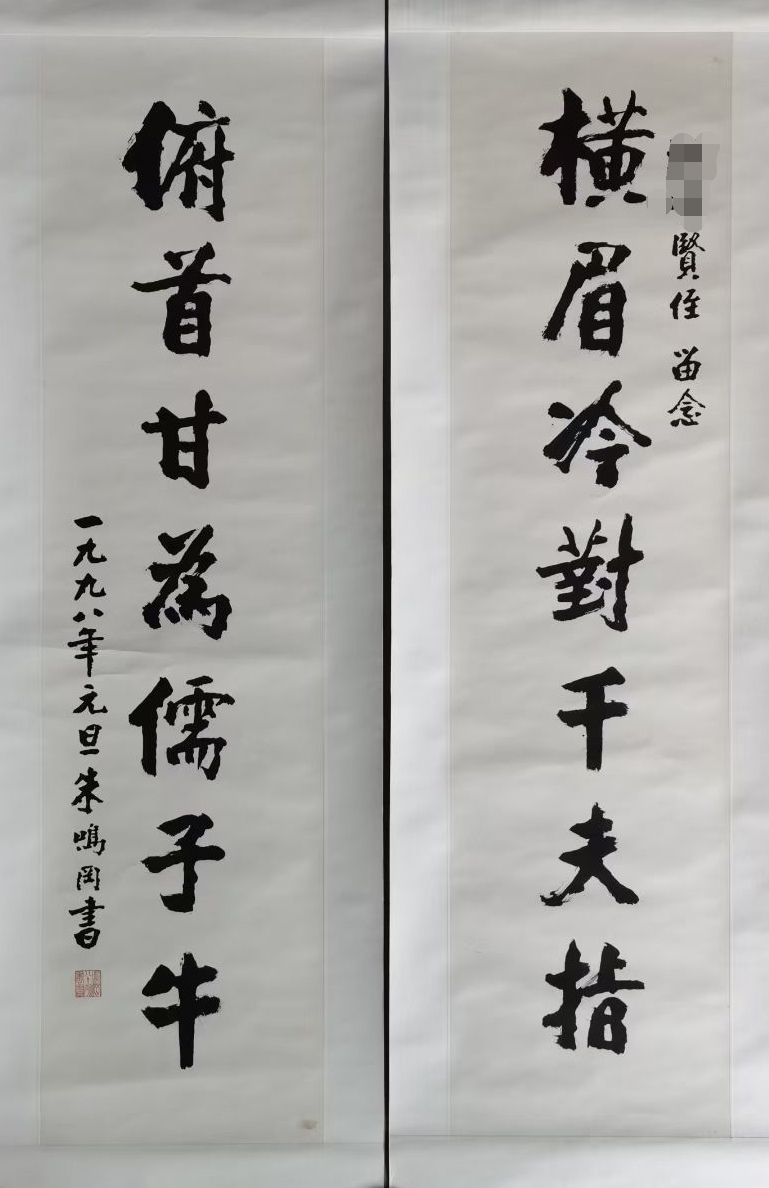 橫眉冷對千夫指
賢侄 留念
俯首甘為儒子牛
一九九八年元旦朱鳴岡書